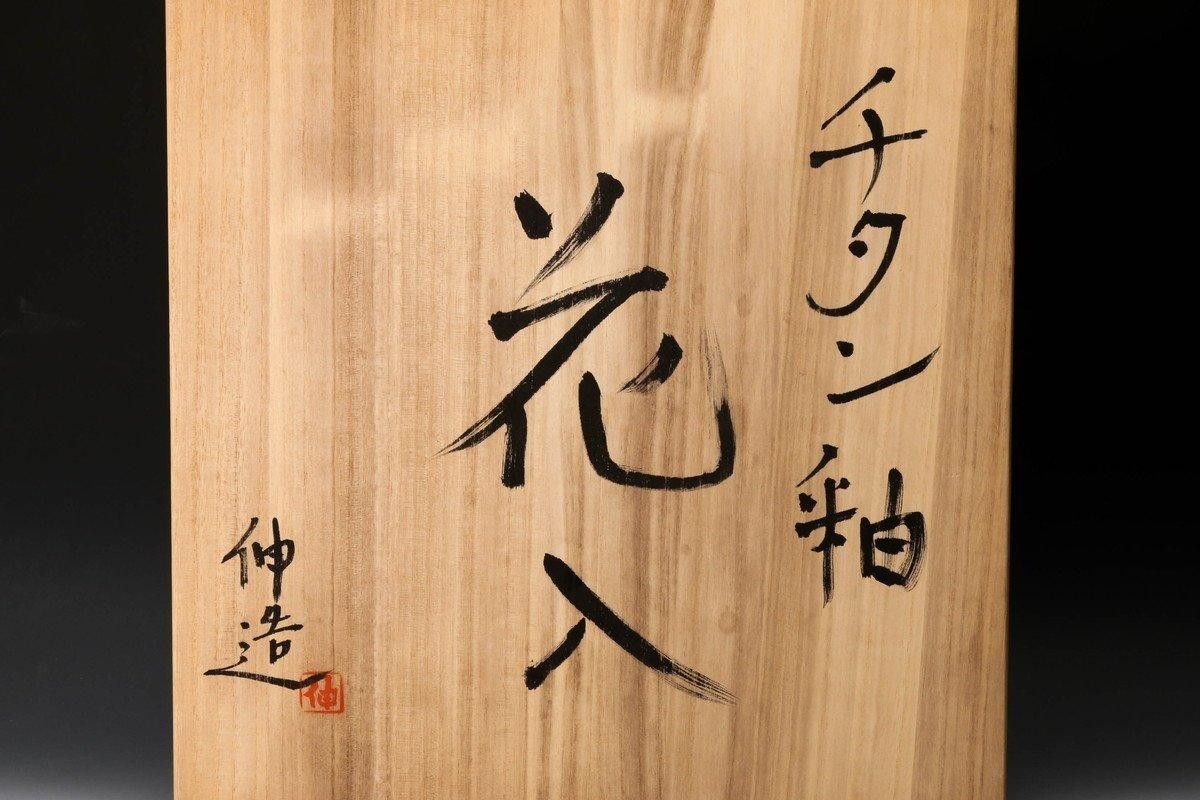 チタン釉
花入
伸造
伸